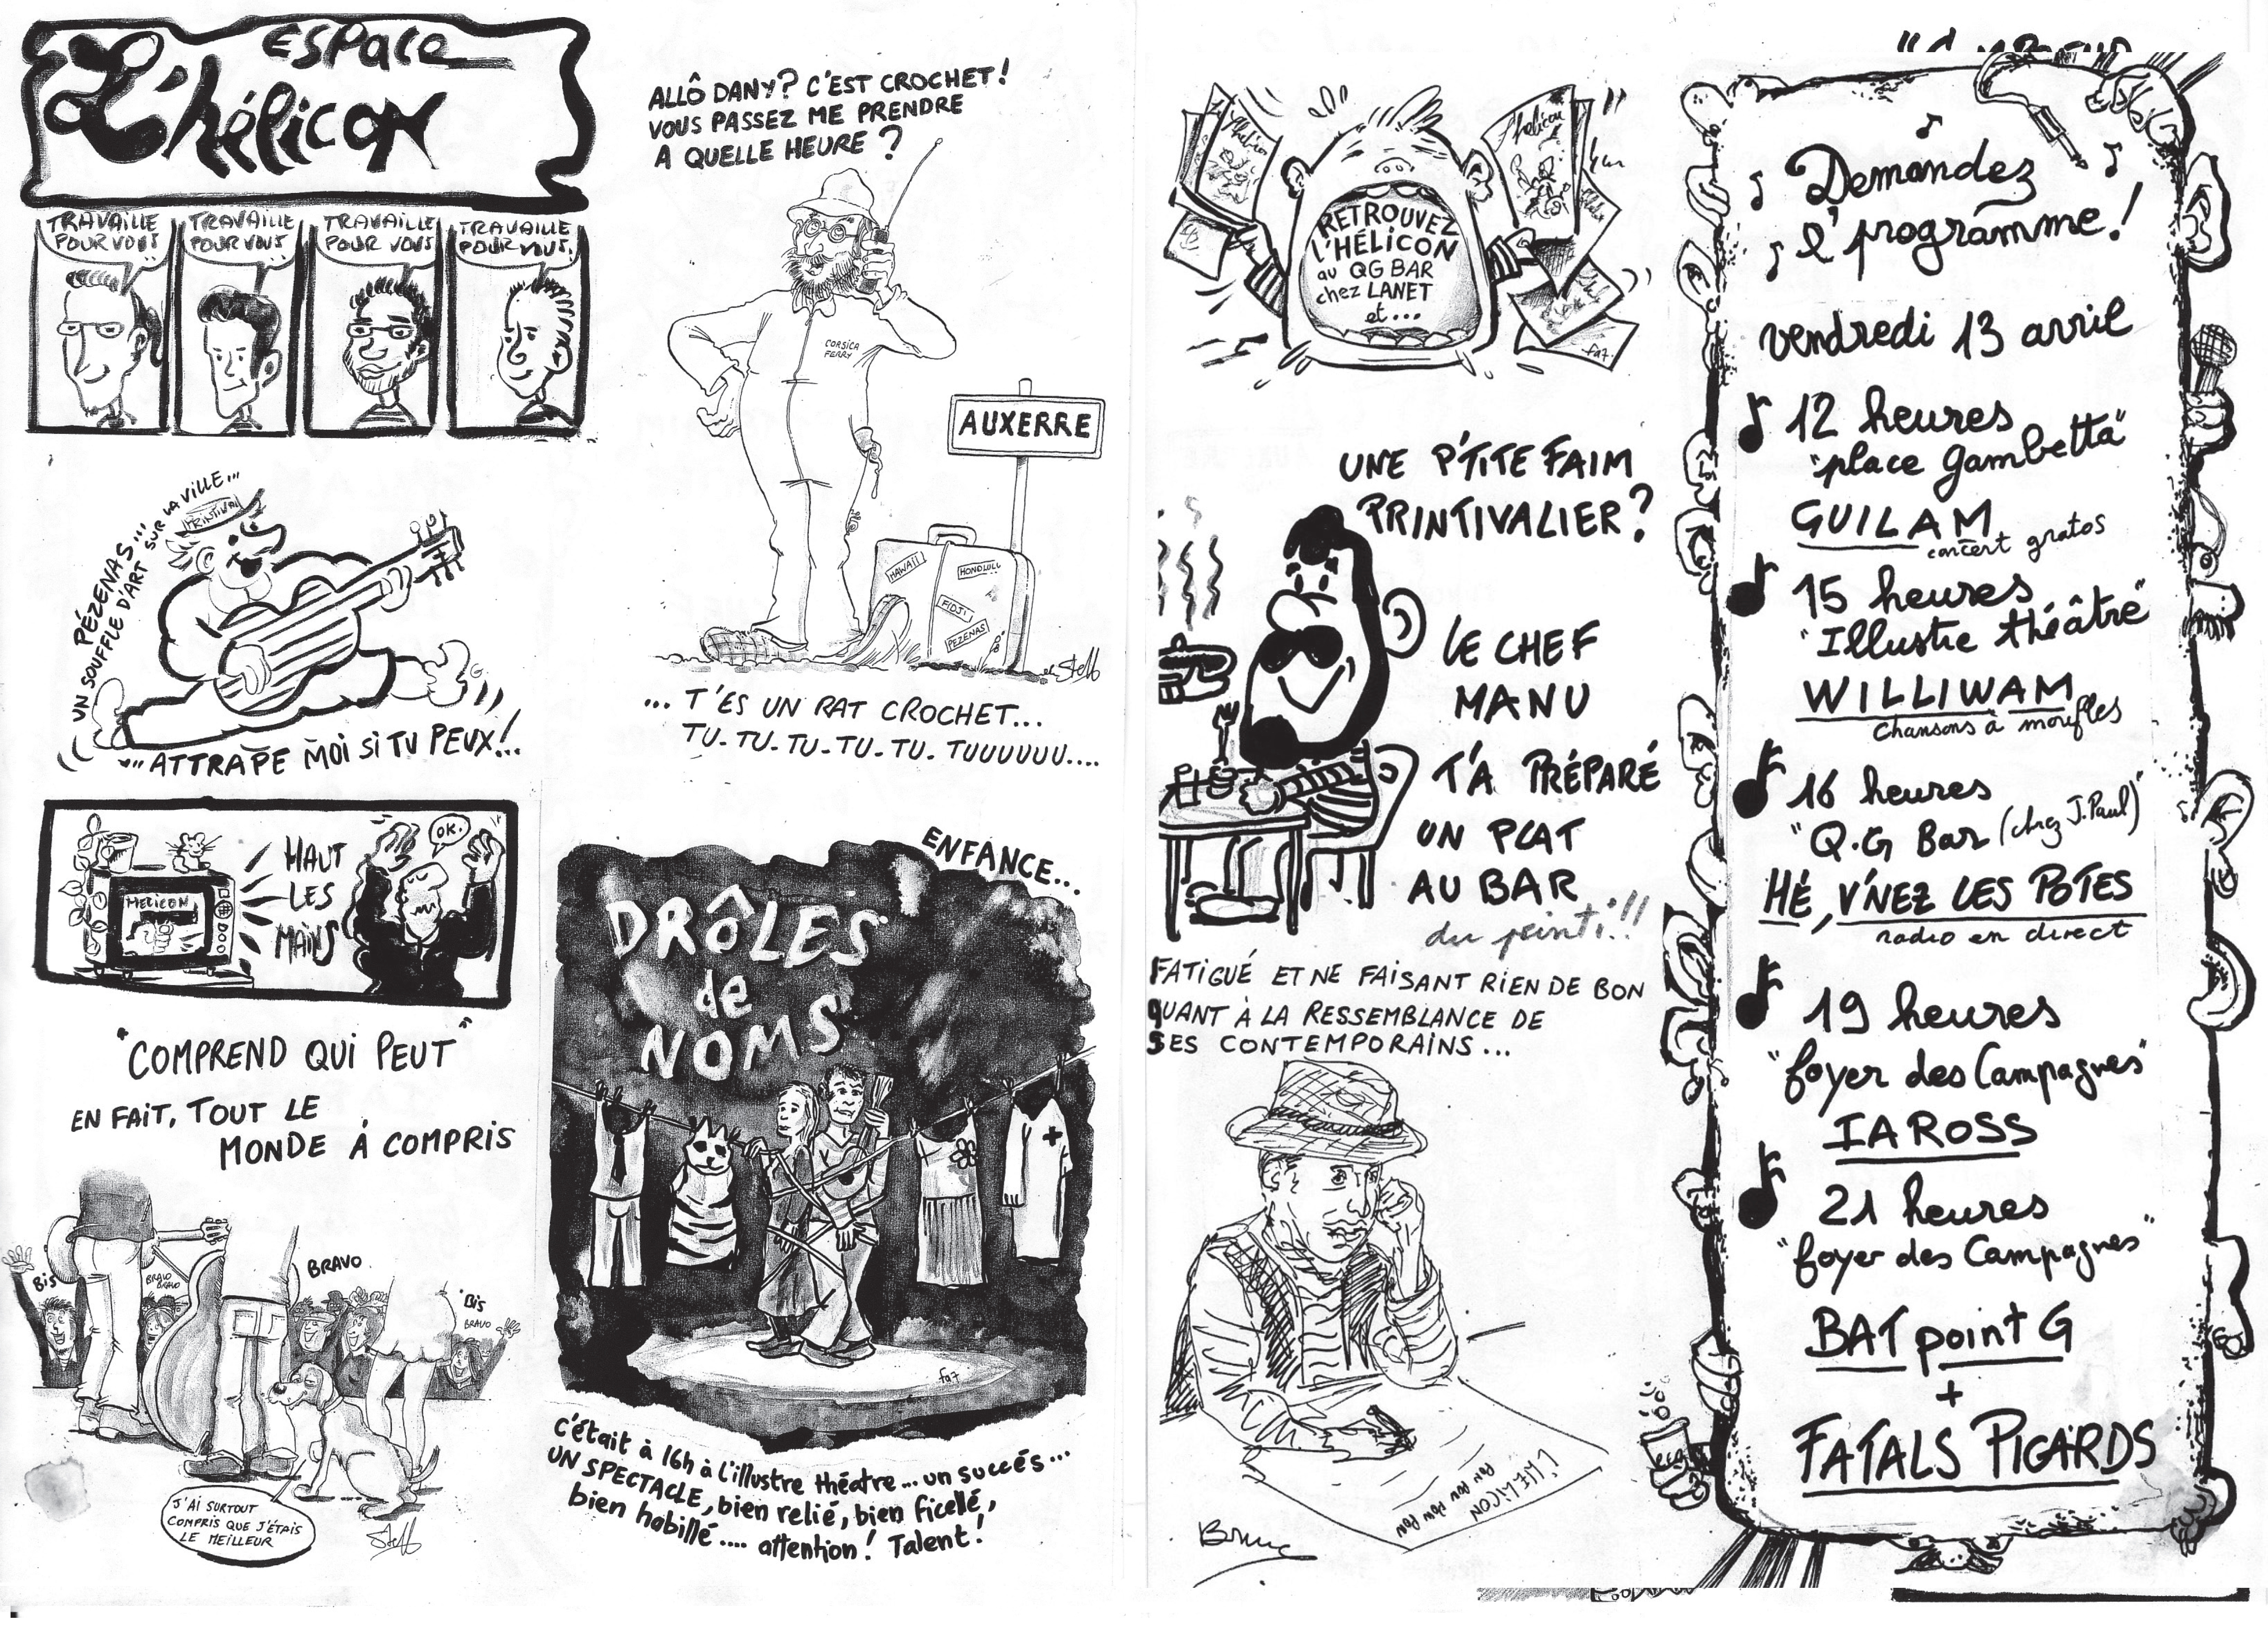 ESPACE
L'hélicon
TRAVAILLE
POUR VOUS
TRAVAILLE
POUR VOUS
TRAVAILLE
POUR VOUS
TRAVAILLE
POUR VOUS!
PÉZENAS...
UN SOUFFLE D'ART SUR LA VILLE...
PRINTIVAL
... ATTRAPE MOI SI TU PEUX!..
HELICON
HAUT
LES
MAINS
OK.
"COMPREND QUI PEUT"
EN FAIT, TOUT LE
MONDE À COMPRIS
BIS
BRAVO
BRAVO
BRAVO
BIS
BRAVO
J'AI SURTOUT
COMPRIS QUE J'ÉTAIS
LE MEILLEUR
Steff
ALLÔ DANY? C'EST CROCHET!
VOUS PASSEZ ME PRENDRE
A QUELLE HEURE?
CORSICA
FERRY
AUXERRE
HAWAÏI
HONOLULU
FIDJI
PEZENAS
Steff
... T'ES UN RAT CROCHET...
TU-TU-TU-TU-TU-TUUUUUU....
ENFANCE...
DRÔLES
de
NOMS
fa7
C'était à 16h à l'illustre théatre... un succés...
UN SPECTACLE, bien relié, bien ficellé,
bien habillé.... attention! Talent!
l'hélicon
l'hélicon
RETROUVEZ
L'HÉLICON
au QG BAR
chez LANET
et...
fa7.
UNE P'TITE FAIM
PRINTIVALIER?
LE CHEF
MANU
T'A PRÉPARÉ
UN PLAT
AU BAR
du printi!!
FATIGUÉ ET NE FAISANT RIEN DE BON
QUANT À LA RESSEMBLANCE DE
SES CONTEMPORAINS...
L'HELICON
PON PON PON PON
Demandez
l'programme!
vendredi 13 avril
12 heures
"place Gambetta"
GUILAM
concert gratos
15 heures
"Illustre théâtre"
WILLIWAM
chansons à moufles
16 heures
"Q.G Bar (chez J.Paul)"
HÉ, V'NEZ LES POTES
radio en direct
19 heures
"foyer des Campagnes"
IAROSS
21 heures
"foyer des Campagnes"
BAT point G
+
FATALS PICARDS